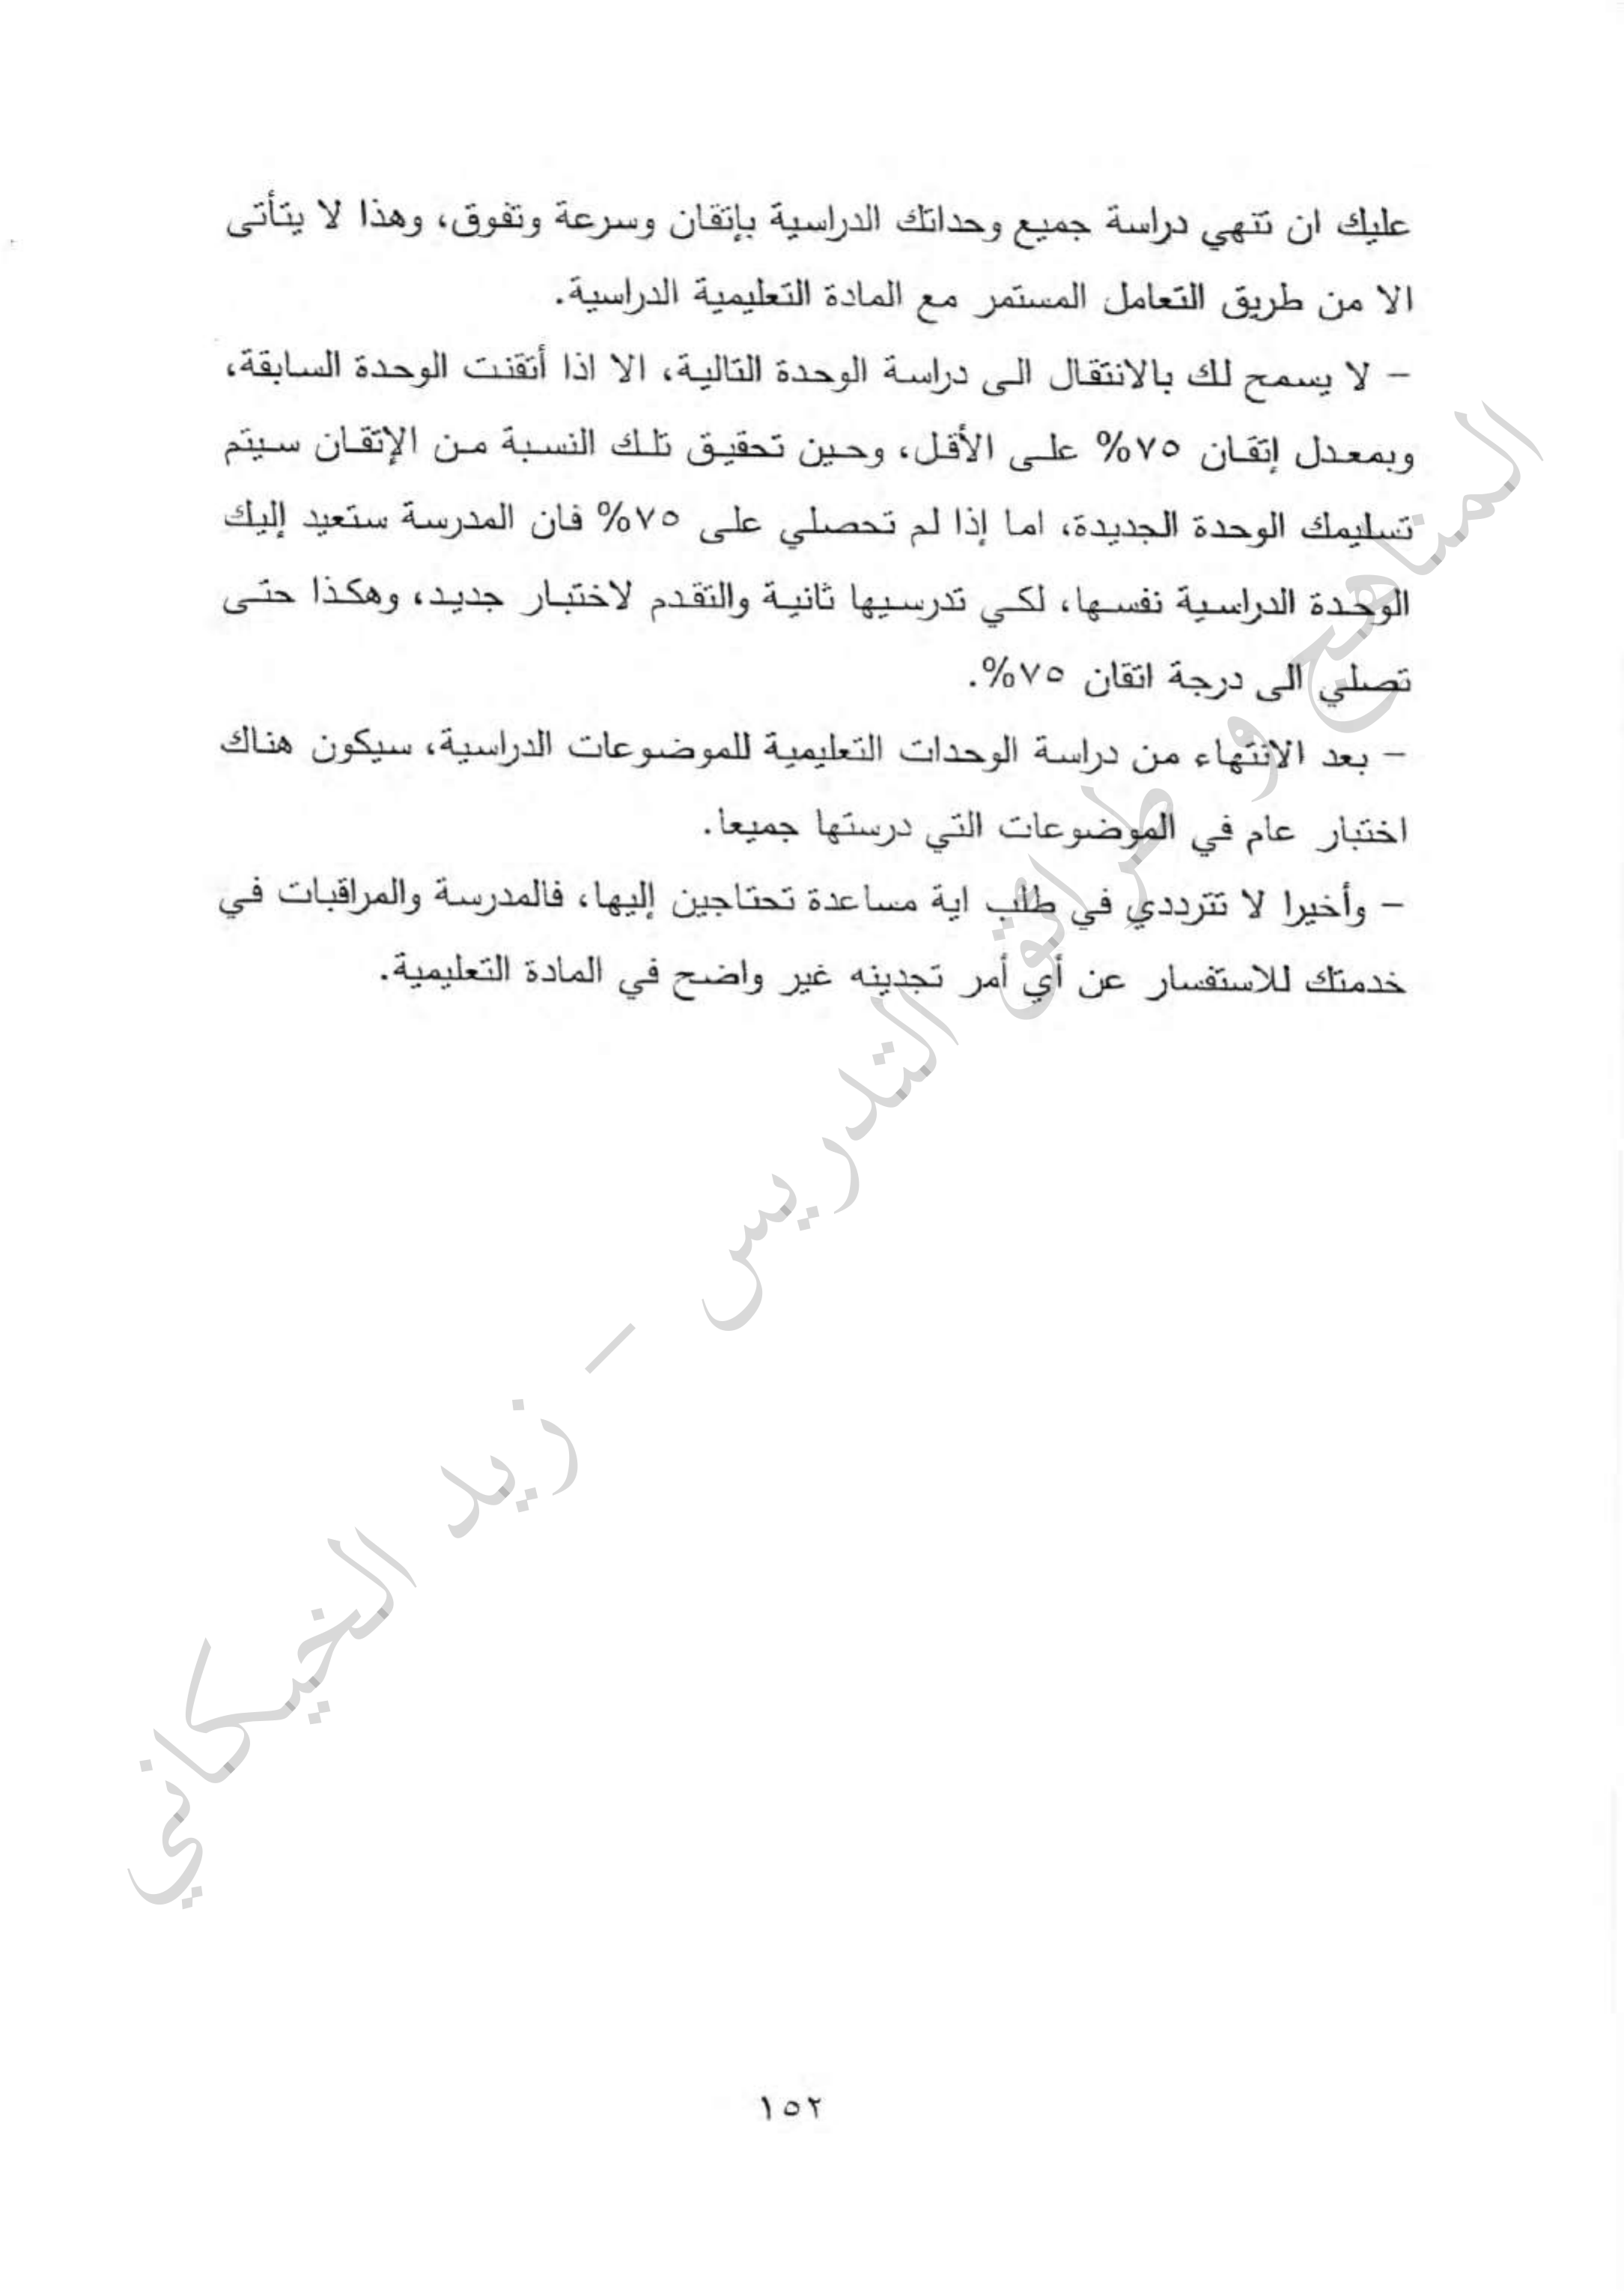 عليك ان تتهي دراسة جميع وحداتك الدراسية بإتقان وسرعة وتفوق، وهذا لا يتأتى
الا من طريق التعامل المستمر مع المادة التعليمية الدراسية.
– لا يسمح لك بالانتقال الى دراسة الوحدة التالية، الا اذا أتقنت الوحدة السابقة،
وبمعدل إتقان ٧٥% على الأقل، وحين تحقيق تلك النسبة من الإتقان سيتم
تسليمك الوحدة الجديدة، اما إذا لم تحصلي على ٧٥% فان المدرسة ستعيد إليك
الوحدة الدراسية نفسها، لكي تدرسيها ثانية والتقدم لاختبار جديد، وهكذا حتى
تصلي الى درجة اتقان ٧٥%.
– بعد الانتهاء من دراسة الوحدات التعليمية للموضوعات الدراسية، سيكون هناك
اختبار عام في الموضوعات التي درستها جميعا.
– وأخيرا لا تترددي في طلب اية مساعدة تحتاجين إليها، فالمدرسة والمراقبات في
خدمتك للاستفسار عن أي أمر تجدينه غير واضح في المادة التعليمية.
المناهج و طرائق التدريس – زيد الخيكاني
١٥٢